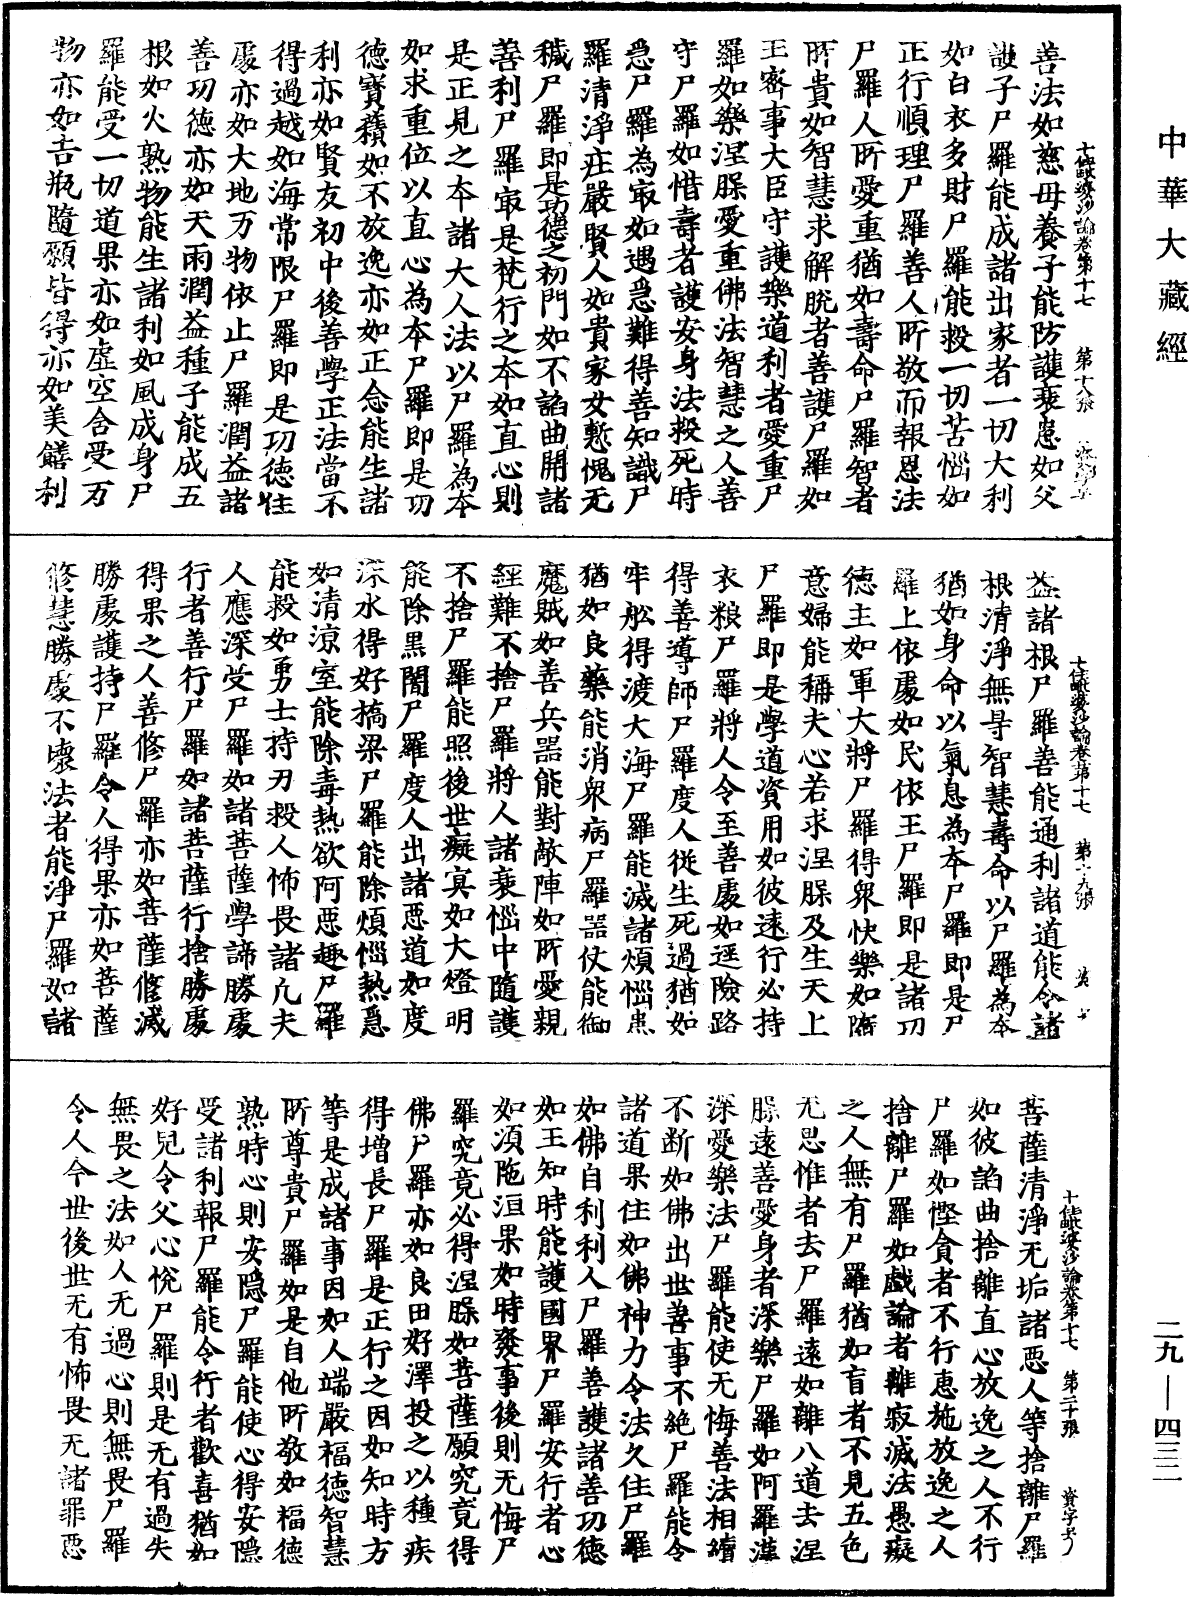 中華大藏經
十住毗婆沙論卷第十七 第十八張
善法如慈母養子能防護衰患如父
護子尸羅能成諸出家者一切大利
如白衣多財尸羅能救一切苦惱如
正行順理尸羅善人所敬而報恩法
尸羅人所愛重猶如壽命尸羅智者
所貴如智慧求解脫者善護尸羅如
王密事大臣守護樂道利者愛重尸
羅如樂涅槃愛重佛法智慧之人善
守尸羅如惜壽者護安身法救死時
急尸羅為㝡如遇急難得善知識尸
羅清淨莊嚴賢人如貴家女慙愧无
穢尸羅即是功德之初門如不諂曲開諸
善利尸羅㝡是梵行之本如直心則
是正見之本諸大人法以尸羅為本
如求重位以直心為本尸羅即是功
德寶藉如不放逸亦如正念能生諸
利亦如賢友初中後善學正法當不
得過越如海常限尸羅即是功德住
處亦如大地万物依止尸羅潤益諸
善功德亦如天雨潤益種子能成五
根如火熟物能生諸利如風成身尸
羅能受一切道果亦如虛空含受万
物亦如吉瓶隨願皆得亦如美饍利
十住毗婆沙論卷第十七 第十九張
益諸根尸羅善能通利諸道能令諸
根清淨無㝵智慧壽命以尸羅為本
猶如身命以氣息為本尸羅即是尸
羅上依處如民依王尸羅即是諸功
德主如軍大將尸羅得衆快樂如隨
意婦能稱夫心若求涅槃及生天上
尸羅即是學道資用如彼遠行必持
衣粮尸羅將人令至善處如逕險路
得善導師尸羅度人從生死過猶如
牢舩得渡大海尸羅能滅諸煩惱患
猶如良藥能消衆病尸羅噐仗能御
魔賊如善兵噐能對敵陣如所愛親
經難不捨尸羅將人諸衰惱中隨護
不捨尸羅能照後世癡冥如大燈明
能除黑闇尸羅度人出諸惡道如度
深水得好撟梁尸羅能除煩惱熱急
如清涼室能除毒熱欲阿惡趣尸羅
能救如勇士持刃救人怖畏諸凡夫
人應深受尸羅如諸菩薩學諦勝處
行者善行尸羅如諸菩薩行捨勝處
得果之人善修尸羅亦如菩薩修滅
勝處護持尸羅令人得果亦如菩薩
修慧勝處不壞法者能淨尸羅如諸
十住毗婆沙論卷第十七 第二十張
菩薩清淨无垢諸惡人等捨離尸羅
如彼諂曲捨離直心放逸之人不行
尸羅如慳貪者不行惠施放逸之人
捨離尸羅如戲論者離寂滅法愚癡
之人無有尸羅猶如盲者不見五色
无思惟者去尸羅遠如離八道去涅
槃遠善愛身者深樂尸羅如阿羅漢
深愛樂法尸羅能使无悔善法相續
不断如佛出世善事不絕尸羅能令
諸道果住如佛神力令法久住尸羅
如佛自利利人尸羅善護諸善功德
如王知時能護國界尸羅安行者心
如須陁洹果如時發事後則无悔尸
羅究竟必得涅槃如菩薩願究竟得
佛尸羅亦如良田好澤投之以種疾
得增長尸羅是正行之因如知時方
等是成諸事因如人端嚴福德智慧
所尊貴尸羅如是自他所敬如福德
熟時心則安隱尸羅能使心得安隱
受諸利報尸羅能令行者歡喜猶如
好兒令父心悅尸羅則是无有過失
無畏之法如人无過心則無畏尸羅
令人今世後世无有怖畏无諸罪惡
二九—四三二